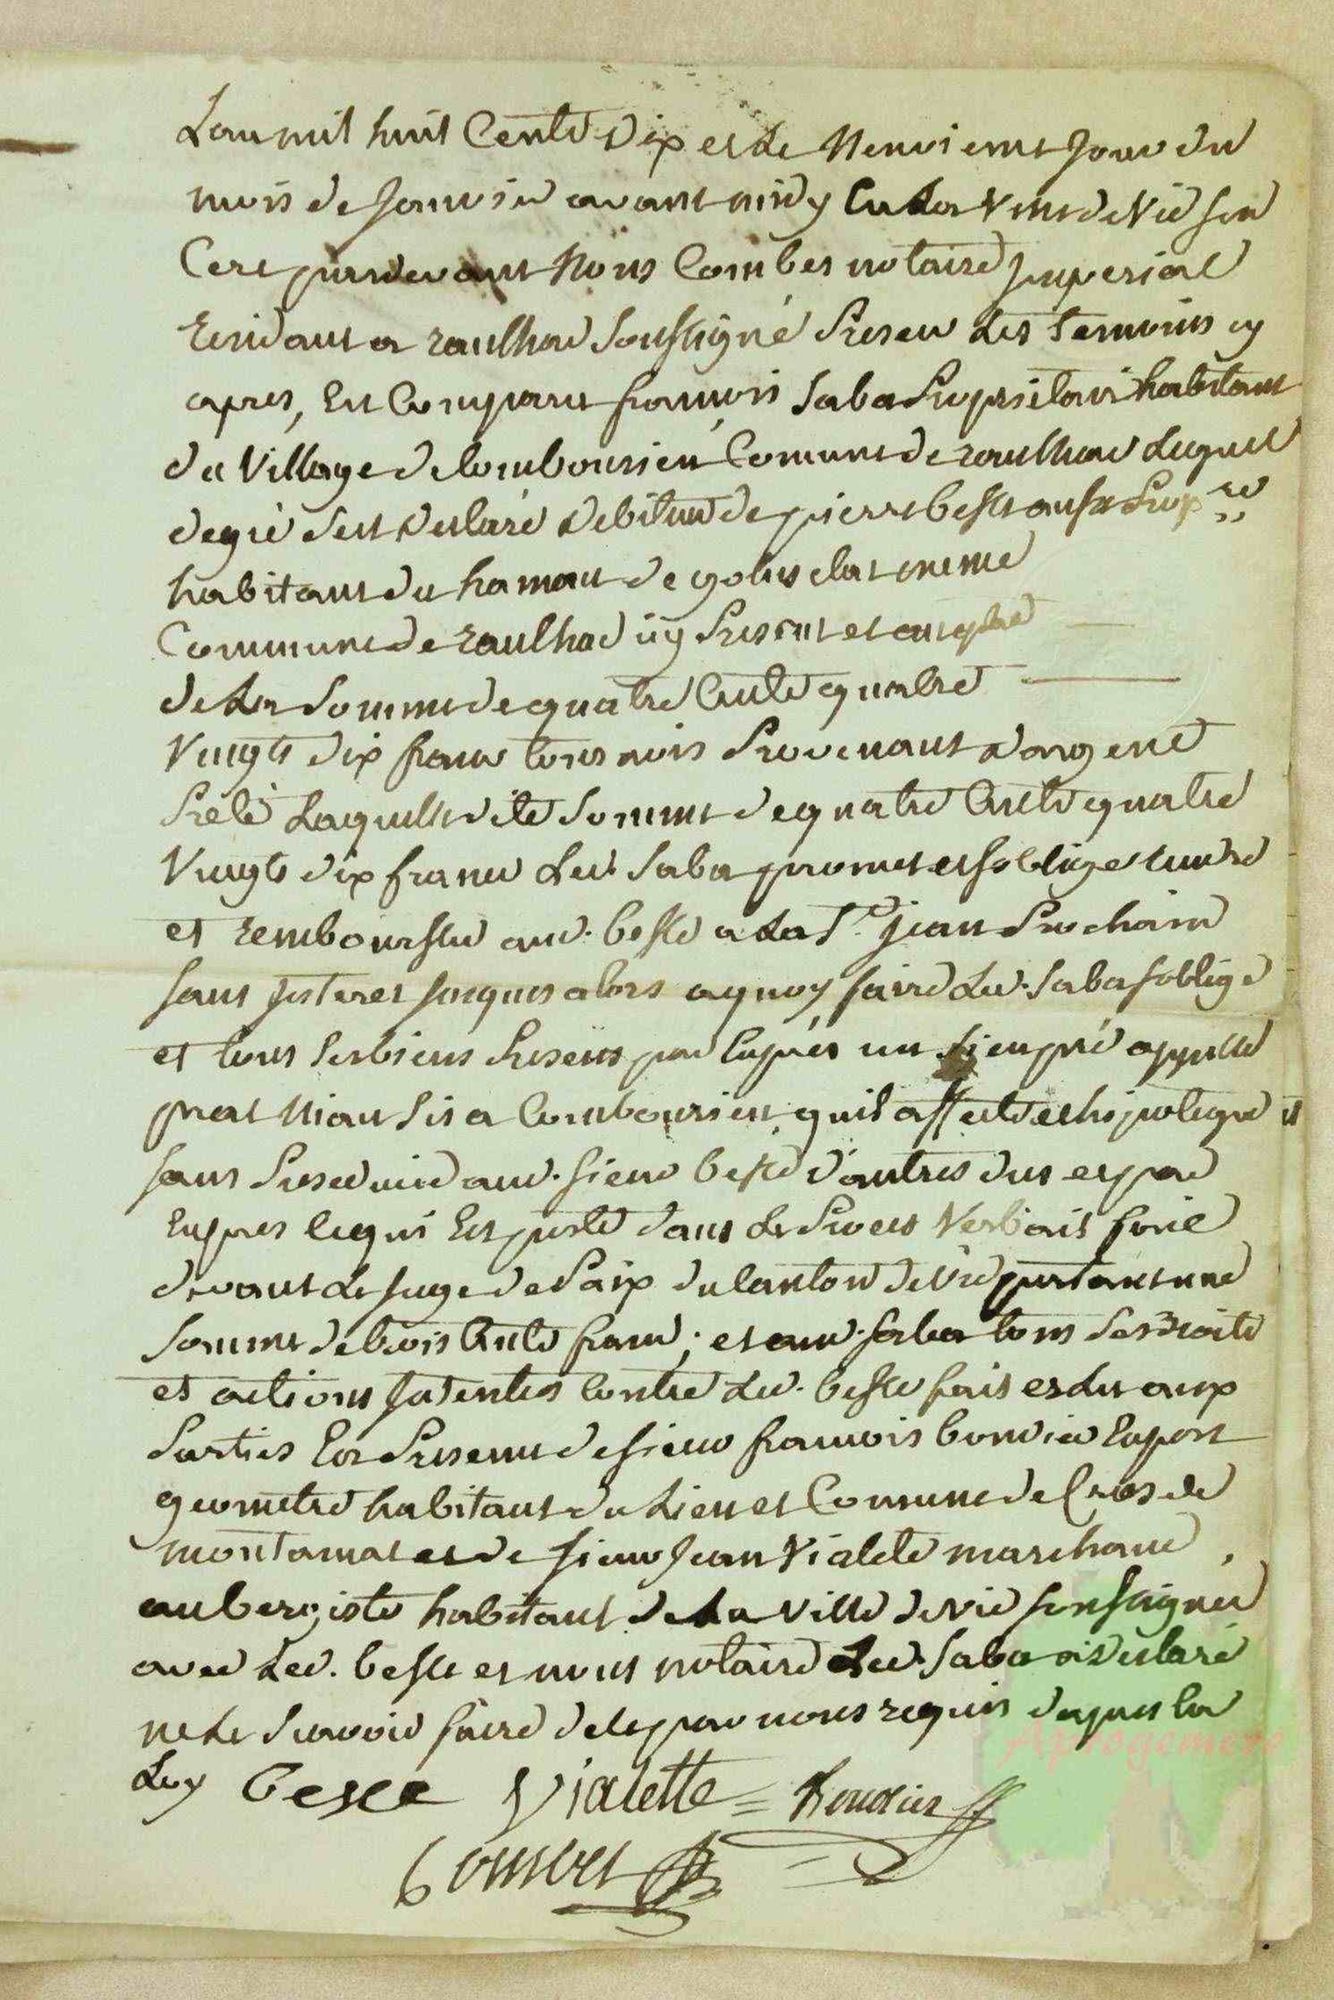 Lan mil huit Cents dix et le Neuvieme Jour du
mois de Janvier avant midy En la Ville de Vic sur
Cere pardevant Nous Combes notaire Imperial
residant a raulhac soussigné Presen des temoins cy
apres, Est Comparu francois Saba Proprietaire habitant
du Village de Combourieu Comune de raulhac Lequel
degré sest declaré debiteur de pierre besse aussi Prop.re
habitant du hamau de meme
Commune de raulhac icy Present et
de la Somme de quatre Cents quatre
Vingts dix francs tournois Provenant dargent
Prété Laquelle dite Somme de quatre Cents quatre
Vingts dix francs Led. Saba promet et soblige rendre
et rembourser aud. besse a la St. jean Prochaine
sans Interet jusques alors a quoy faire Led. Saba soblige
et tous ses biens Presens par Exprés un sien pré appellé
prat Niau sis a Combourieu quil affecte et hipoteque
sans Prejudice aud. sieur besse d'autres dus et par
Expres ce qui Est porté dans le Proces Verbail
devant le Juge de Paix du Canton de Vic portant une
Somme de trois Cents francs; et aud. Saba tous Ses droits
et actions Intentés Contre Led. besse fait et lu aux
Parties En Presence de sieur francois bondier Expert
geometre habitant du Lieu et Comune de Cros de
montamat et de sieur Jean Vialete marchand
aubergiste habitant de la ville de vic soussignes
avec Led. besse et nous notaire Led. Saba a declaré
ne le Scavoir faire de le par nous requis dapres la
Loy Besse Vialette = Bondier
Combes